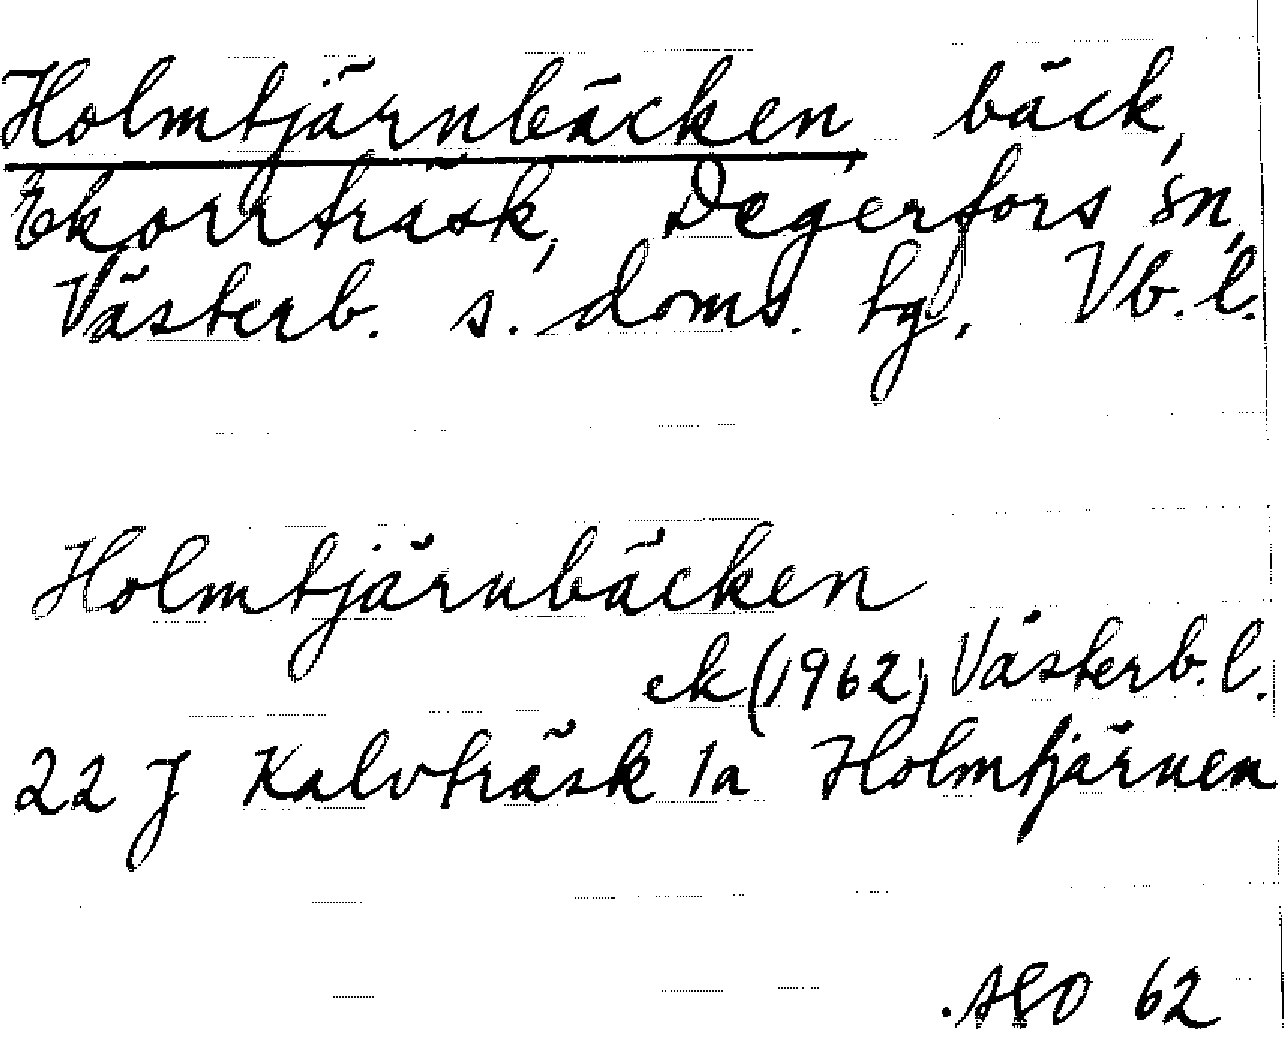 Holmtjärnbäcken, bäck,
Ekorrträsk, Degerfors sn,
Västerb. s. doms. tg, Vb. l.
Holmtjärnbäcken
ek (1962) Västerb. l.
22 J Kalvträsk 1a Holmtjärnen
62